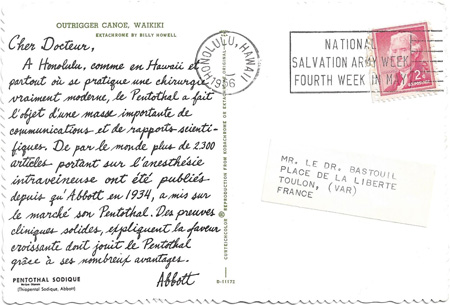 OUTRIGGER CANOE, WAIKIKI
EKTACHROME BY BILLY HOWELL
Cher Docteur,
A Honolulu, comme en Hawaii et
partout où se pratique une chirurgie
vraiment moderne, le Pentothal a fait
l'objet d'une masse importante de
communications et de rapports scienti-
fiques. De par le monde plus de 2.300
articles portant sur l'anesthésie
intraveineuse ont été publiés
depuis qu'Abbott en 1934, a mis sur
le marché son Pentothal. Des preuves
cliniques solides, expliquent la faveur
croissante dont jouit le Pentothal
grâce à ses nombreux avantages.
Abbott
PENTOTHAL SODIQUE
(Thiopental Sodique, Abbott)
D-11172
HONOLULU, HAWAII
1956
NATIONAL
SALVATION ARMY WEEK
FOURTH WEEK IN MAY
2¢
MR. LE DR. BASTOUIL
PLACE DE LA LIBERTE
TOULON, (VAR)
FRANCE